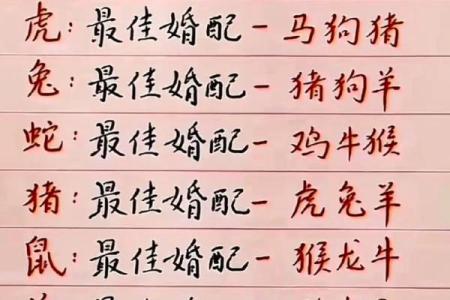 虎：最佳婚配－马狗猪
兔：最佳婚配－猪狗羊
蛇：最佳婚配－鸡牛猴
猪：最佳婚配－虎兔羊
鼠：最佳婚配－猴龙牛